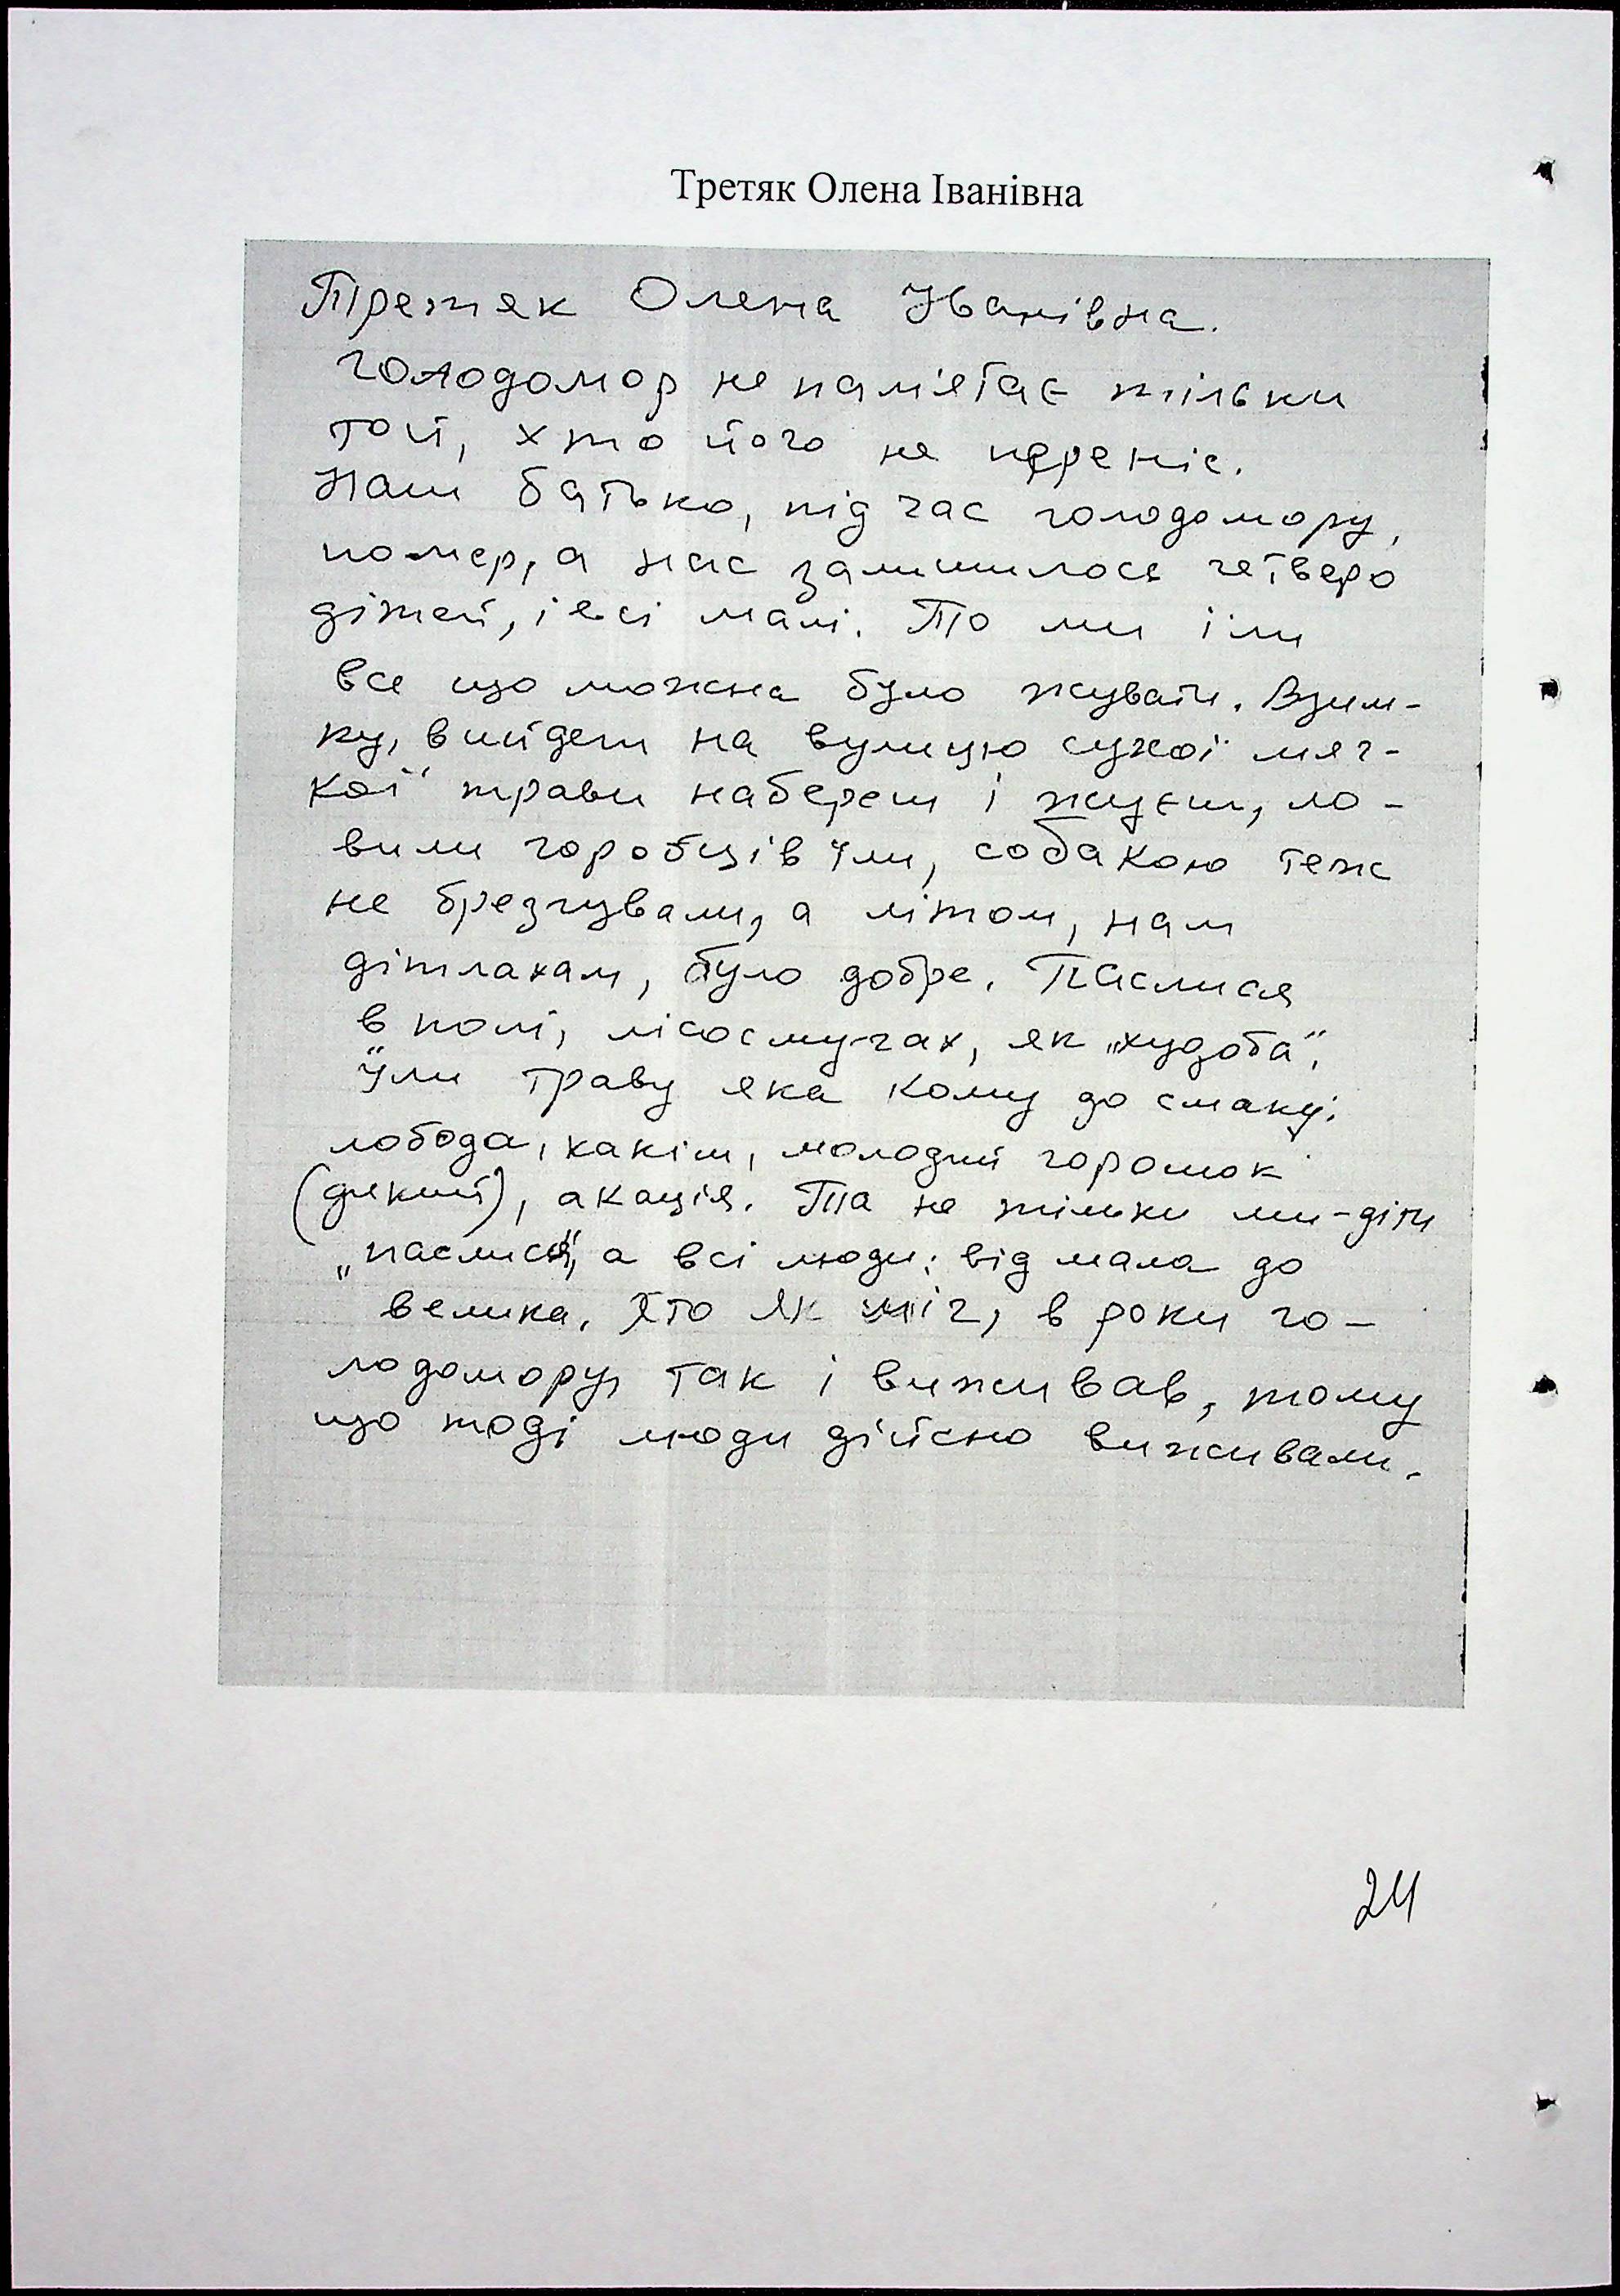 Третяк Олена Іванівна
Третяк Олена Іванівна.
Голодомор не пам'ятає тільки
той, хто його не переніс.
Наш батько, під час голодомору,
помер, а нас залишилось четверо
дітей, і всі малі. То ми їли
все що можна було жувати. Взим-
ку, вийдеш на вулицю сухої мяг-
кої трави набереш і жуєш, ло-
вили горобців їли, собакою теж
не брезгували, а літом, нам
дітлахам, було добре. Паслися
в полі, лісосмугах, як „худоба",
їли траву яка кому до смаку:
лобода, какіш, молодий горошок
(дикий), акація. Та не тільки ми-діти
„паслися", а всі люди: від мала до
велика. Хто як міг, в роки го-
лодомору, так і виживав, тому
що тоді люди дійсно виживали.
24